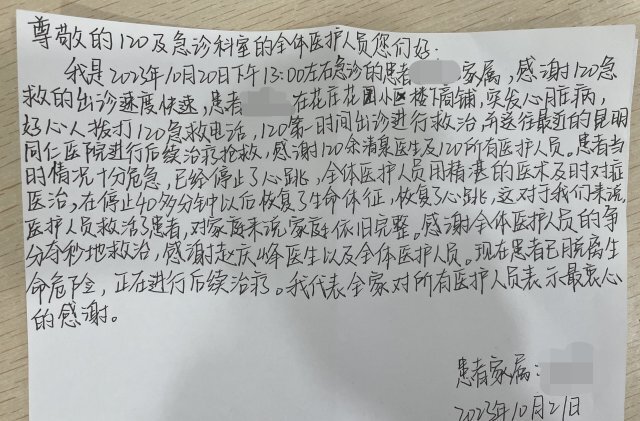 尊敬的120及急诊科室的全体医护人员您们好:
我是2023年10月20日下午13:00左右急诊的患者 家属,感谢120急
救的出诊速度快速,患者 在花庄花园小区楼下商铺,突发心脏病,
好心人拨打120急救电话,120第一时间出诊进行救治,并送往最近的昆明
同仁医院进行后续治疗抢救,感谢120余清某医生及120所有医护人员。患者当
时情况十分危急,已经停止了心跳,全体医护人员用精湛的医术及时对症
医治,在停止40多分钟以后恢复了生命体征,恢复了心跳,这对于我们来说,
医护人员救活了患者,对家庭来说家庭依旧完整。感谢全体医护人员的争
分夺秒地救治,感谢赵庆峰医生以及全体医护人员。现在患者已脱离生
命危险,正在进行后续治疗。我代表全家对所有医护人员表示最衷心
的感谢。
患者家属:
2023年10月21日